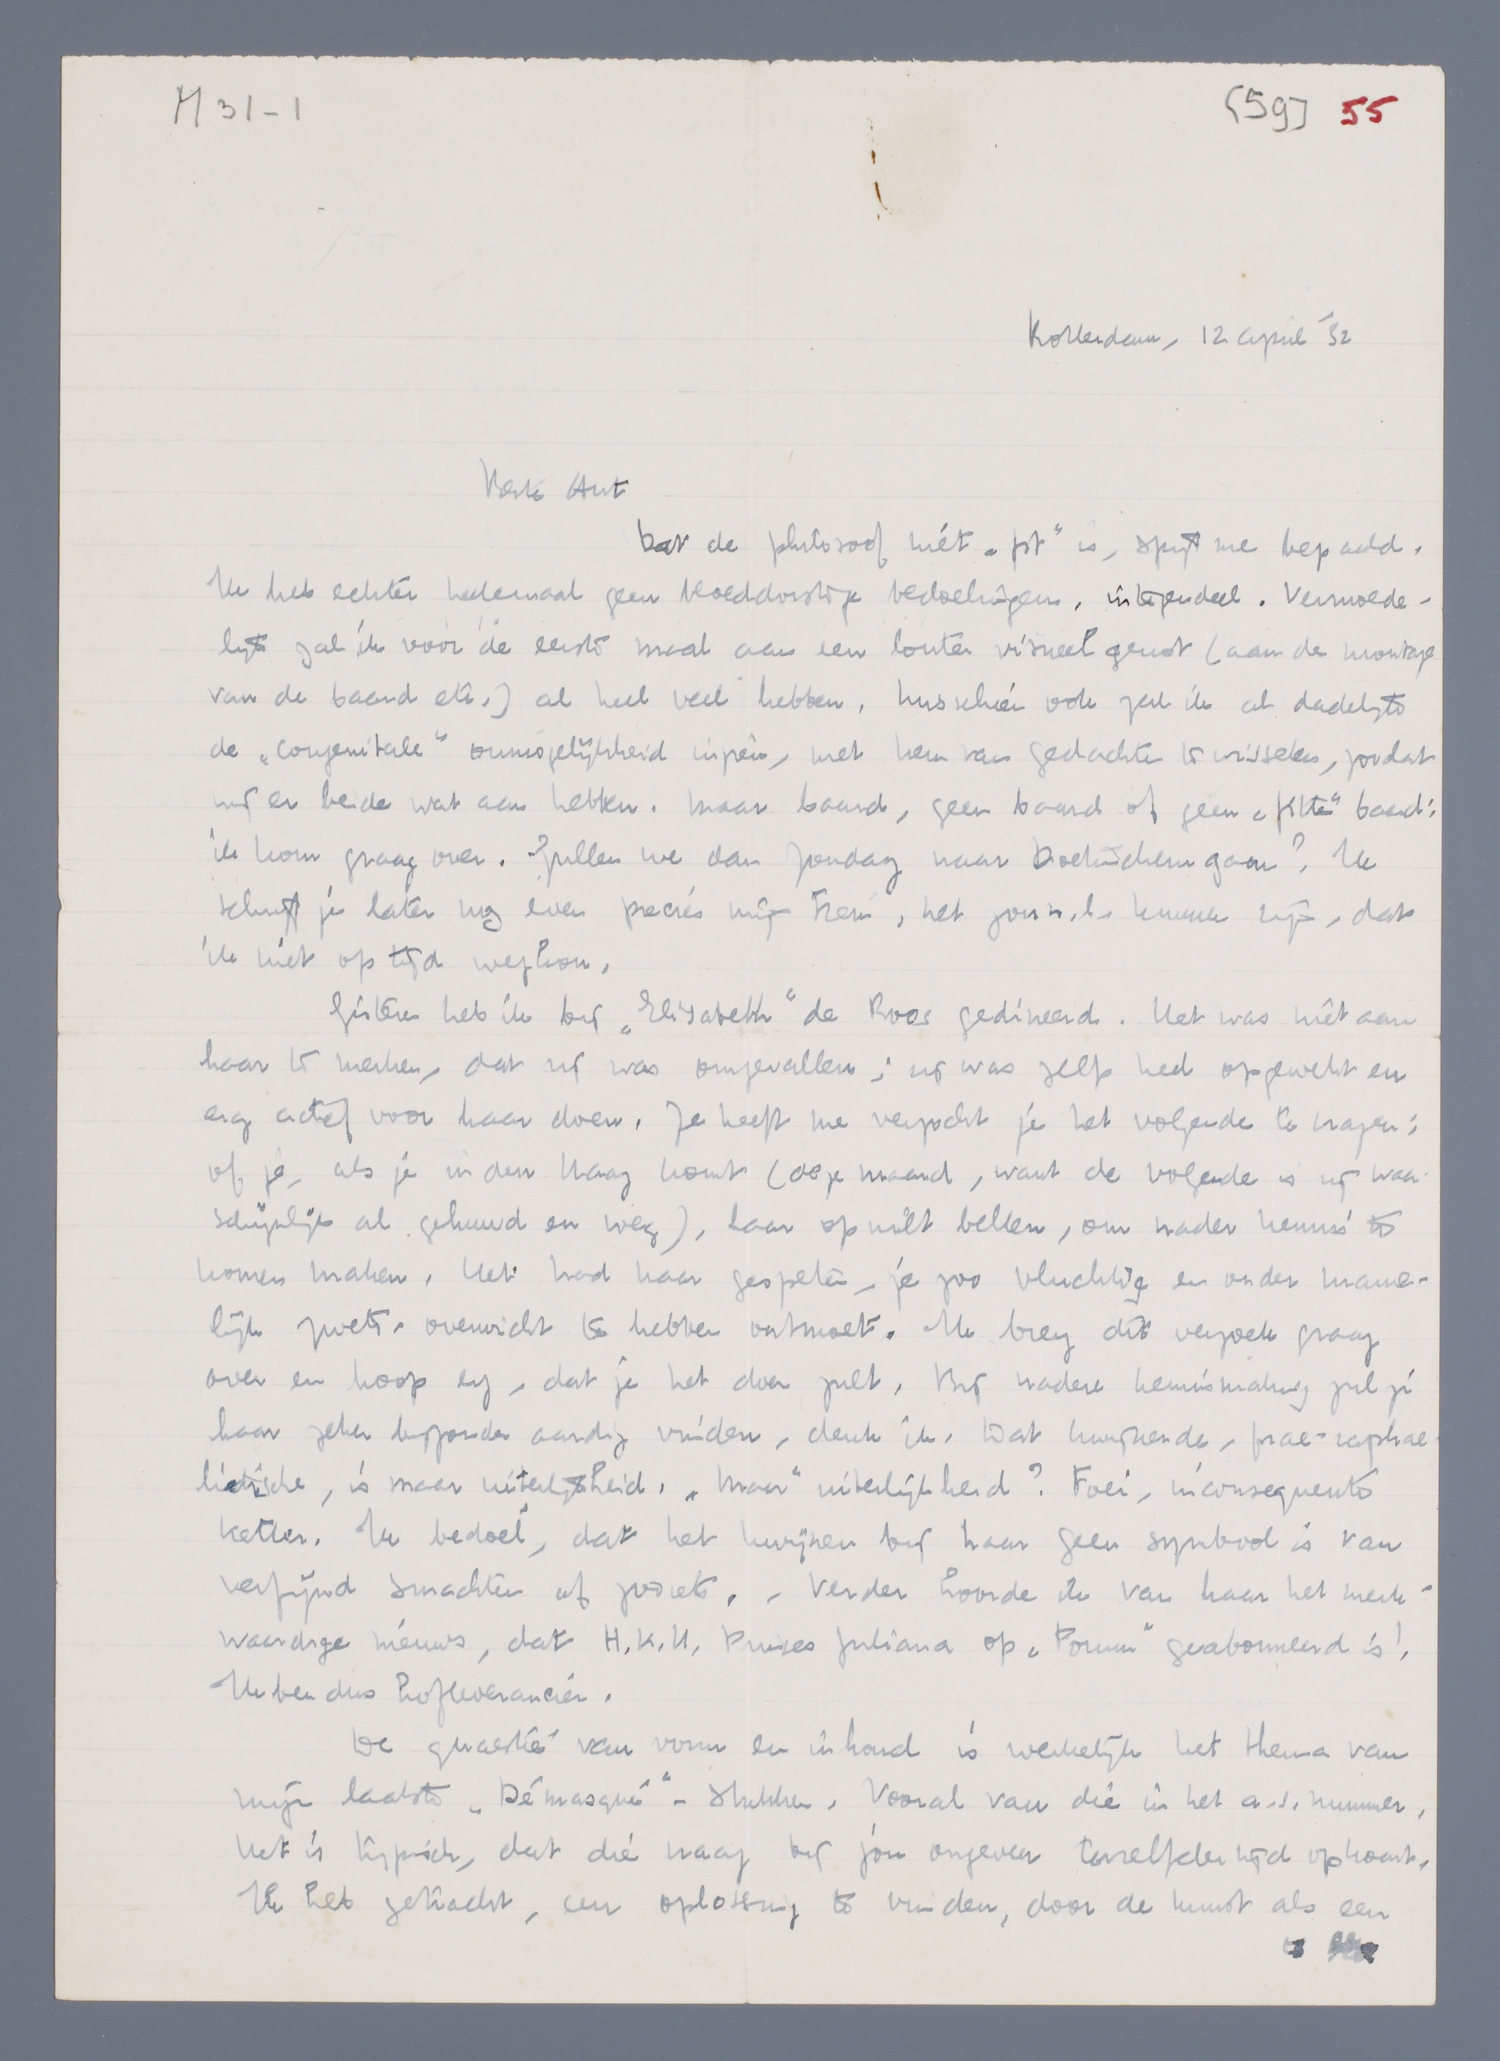 M 31-1
[59] 55
Rotterdam, 12 april '32
Beste Ant
Dat de philosoof niét „fit" is, spijt me bepaald.
Ik heb echter heelemaal geen bloeddorstige bedoelingen, integendeel. Vermoede-
lijk zal ik voor de eerste maal aan een louter visueel genot (aan de montage
van de baard etc.) al heel veel hebben. Misschien ook zal ik al dadelijk
de „congenitale" onmogelijkheid inzien, met hem van gedachte te wisselen, zoodat
wij er beide wat aan hebben. Maar baard, geen baard of geen „fitte" baard:
ik kom graag over. Zullen we dan Zondag naar Doetinchem gaan? Ik
schrijf je later nog even precies mijn trein, het zou n.l. kunnen zijn, dat
ik niet op tijd wegkon.
Gisteren heb ik bij „Elisabeth" de Roos gedineerd. Het was niet aan
haar te merken, dat zij was omgevallen; zij was zelfs heel opgewekt en
erg actief voor haar doen. Ze heeft me verzocht je het volgende te vragen:
of je, als je in den Haag komt (deze maand, want de volgende is zij waar-
schijnlijk al gehuwd en weg), haar op wilt bellen, om nader kennis te
komen maken. Het had haar gespeten, je zoo vluchtig en onder manne-
lijk overwicht te hebben ontmoet. Ik breng dit verzoek graag
over en hoop erg, dat je het doen zult. Bij nadere kennismaking zul je
haar zeker bijzonder aardig vinden, denk ik. Dat kwijnende, prae-raphae-
lietische, is maar uiterlijkheid. „Maar" uiterlijkheid? Foei, inconsequente
ketter. Ik bedoel, dat het kwijnen bij haar geen symbool is van
verfijnd smachten of zoiets. - Verder hoorde ik van haar het merk-
waardige nieuws, dat H.K.H. Prinses Juliana op „Forum" geabonneerd is!
Ik ben dus hofleverancier.
De quaestie van vorm en inhoud is werkelijk het thema van
mijn laatste „Démasqué"-stukken. Vooral van die in het a.s. nummer.
Het is typisch, dat die vraag bij jou ongeveer terzelfder tijd opkomt.
Ik heb getracht, een oplossing te vinden, door de kunst als een